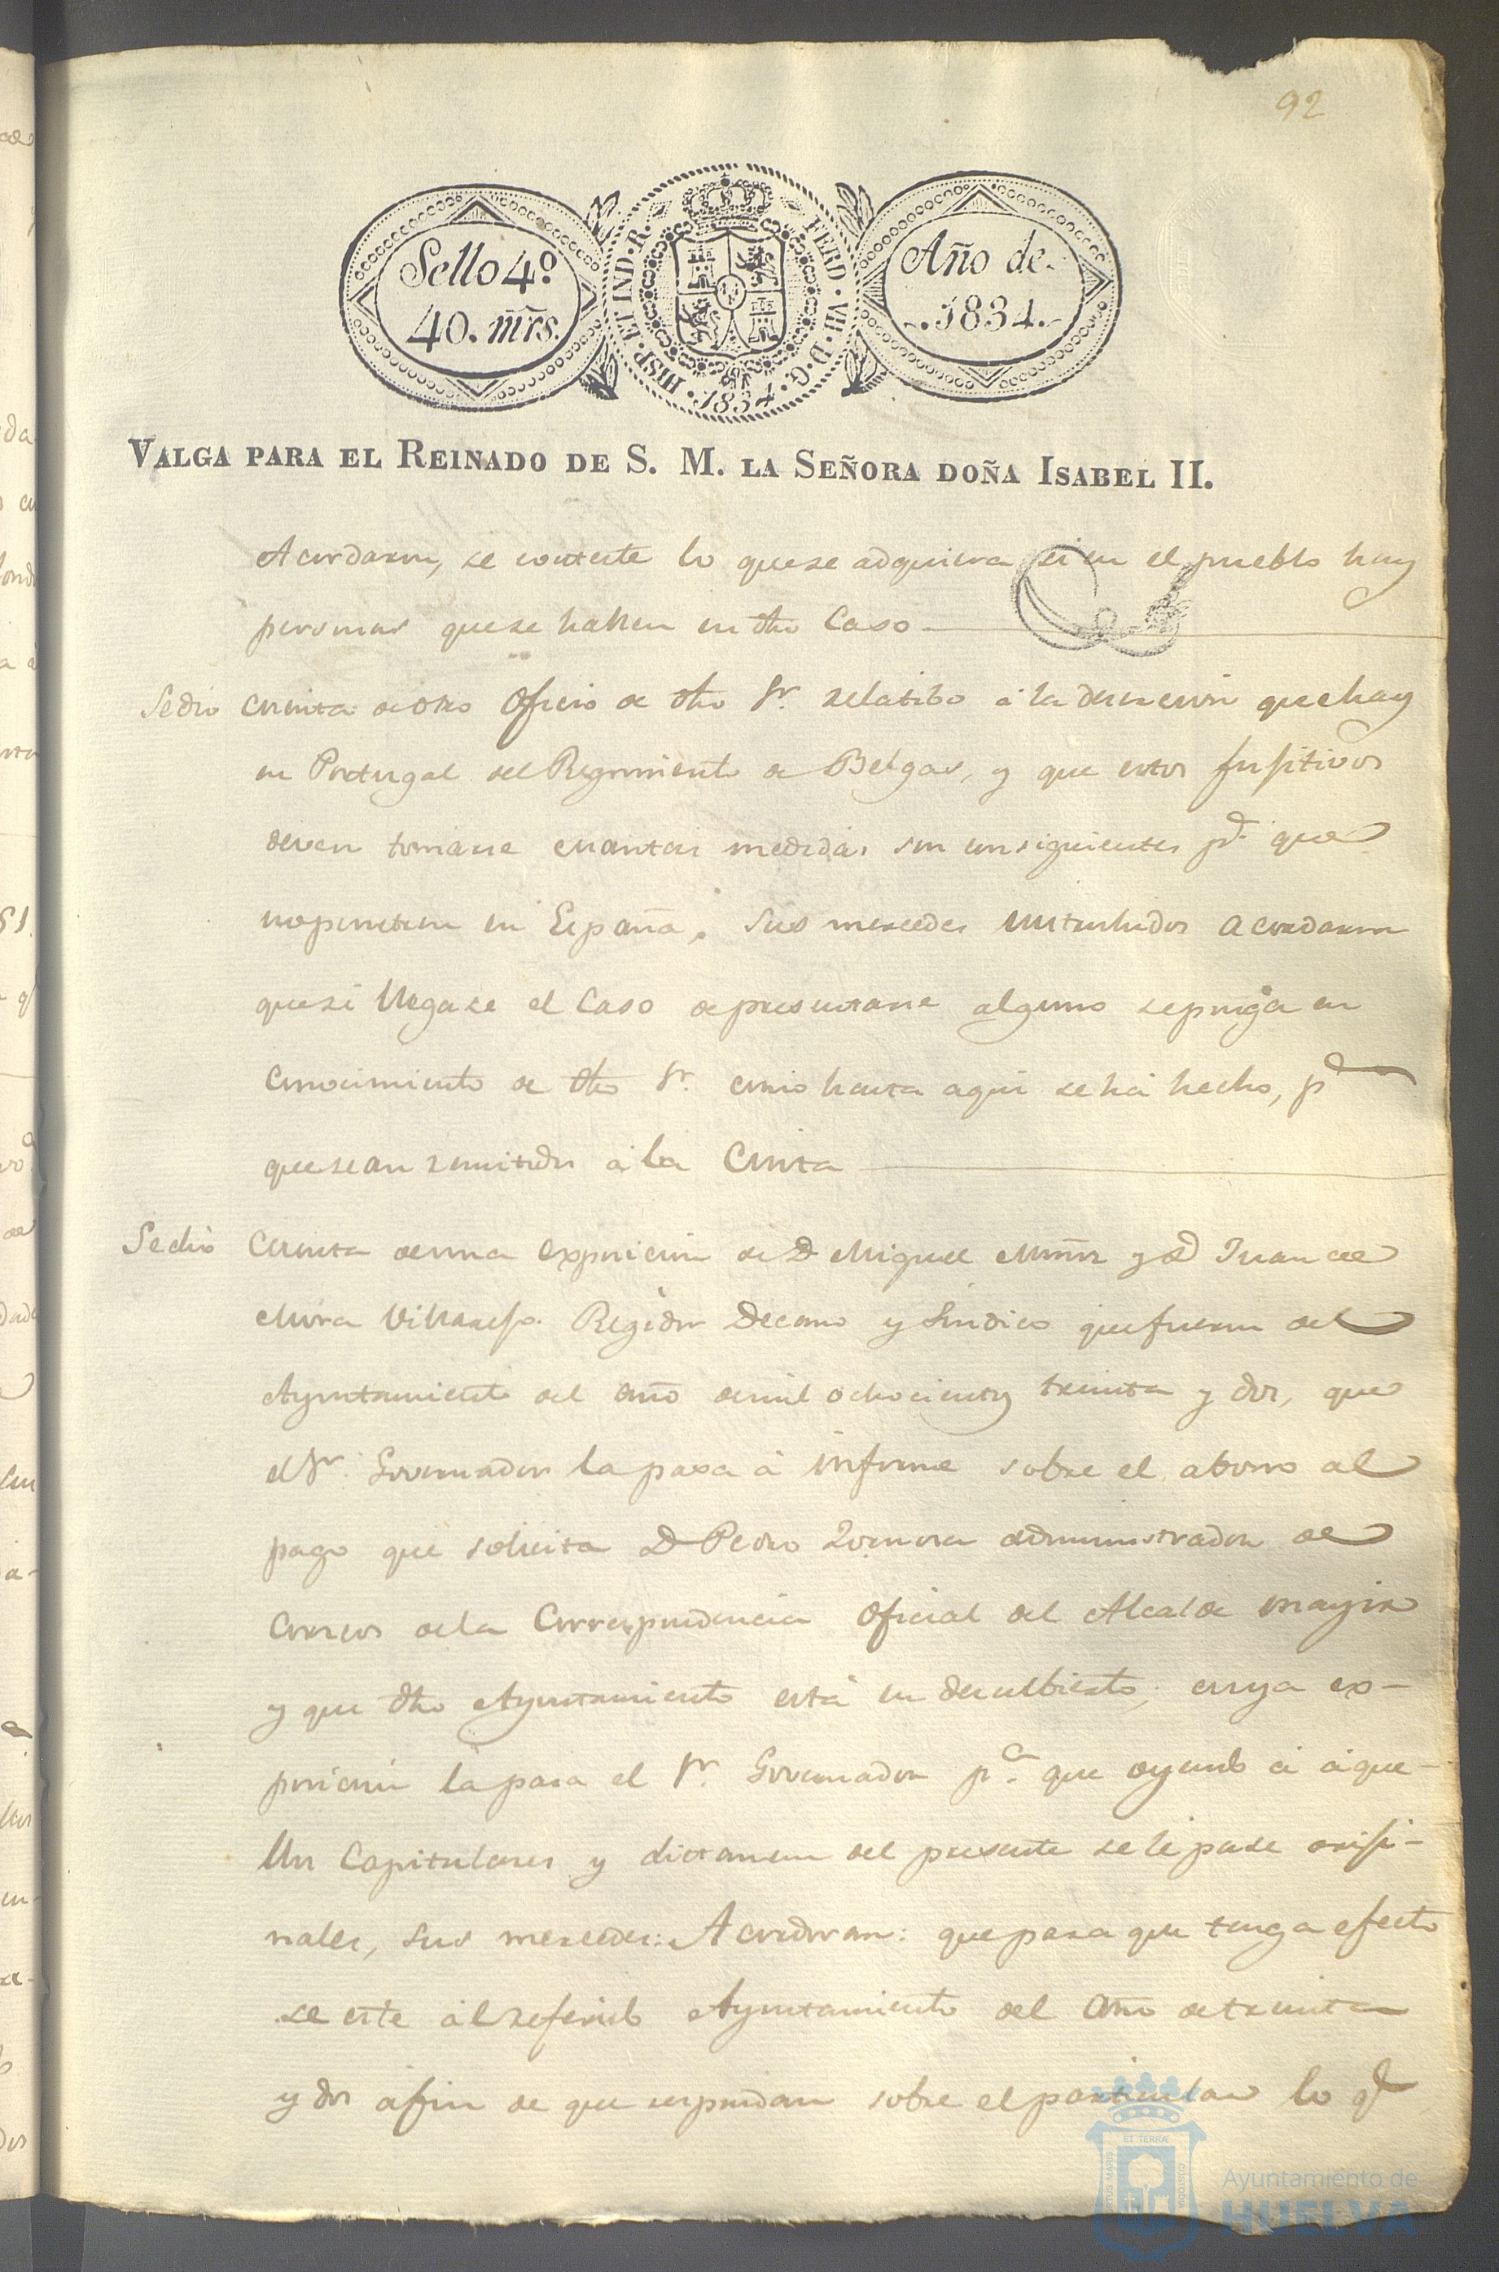 92
Sello 4º
40. mrs.
HISP. ET IND. R.
FERD. VII. D. G.
.1834.
Año de
.1834.
VALGA PARA EL REINADO DE S. M. LA SEÑORA DOÑA ISABEL II.
Acordaron, se conteste lo que se adquiera si en el pueblo hay
personas que se hallen en dho Caso
Se dio cuenta de otro Oficio de dho Sr. relatibo á la desercion que hay
en Portugal del Regimiento de Belgas, y que estos fugitivos
deven tomarse cuantas medidas son consiguientes pª que
no penetren en España. Sus mercedes enterados acordaron
que si llegase el Caso de presentarse alguno se ponga en
conocimiento de dho Sr. como hasta aqui se há hecho, pª
que sean remitidos á la Corte
Se dió Cuenta de una exposicion de D Miguel Muñoz y D Juan de
Mora Villarejo. Regidor Decano y Sindico que fueron del
Ayuntamiento del año de mil ochocientos treinta y dos, que
el Sr. Governador la pasa á informe sobre el abono al
pago que solicita D Pedro administrador de
correos de la Correspondencia Oficial del Alcalde mayor
y que dho Ayuntamiento está en descubierto, cuya ex-
posicion la pasa el Sr. Governador pª. que oyendo á aque-
llos Capitulares y dictamen del presente se le pase origi-
nales, sus mercedes: Acordaron: que para que tenga efecto
se cite al referido Ayuntamiento del año de treinta
y dos á fin de que respondan sobre el particular lo q
Ayuntamiento de
HUELVA